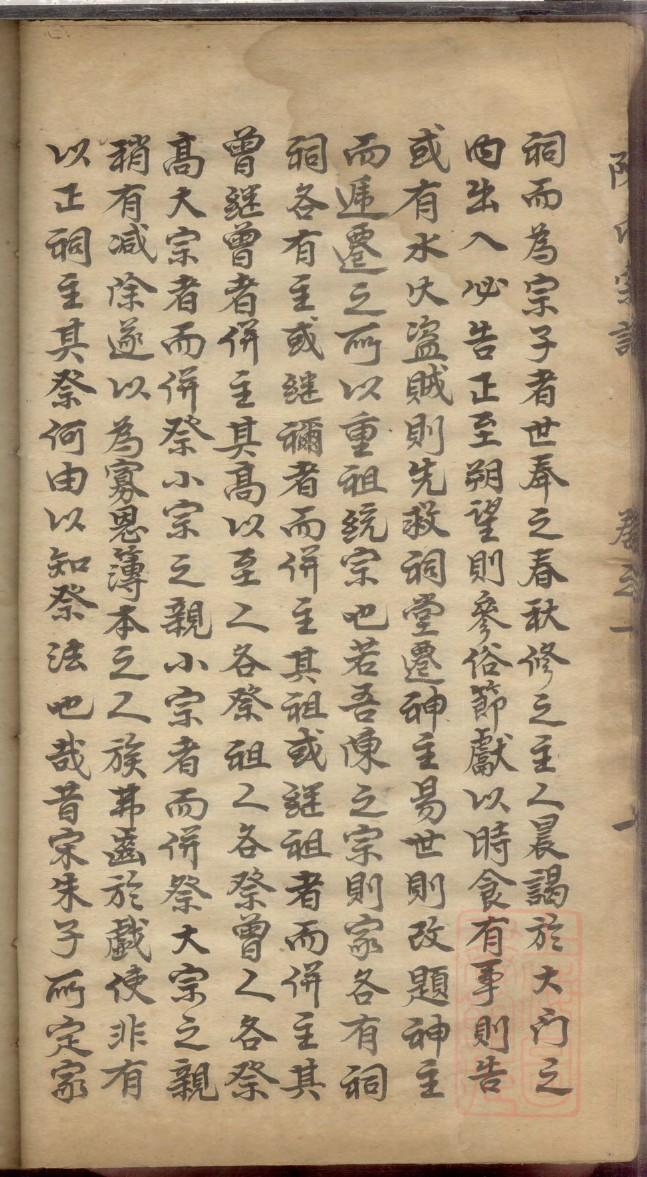 祠而為宗子者世奉之春秋修之主人晨謁於大門之
内出入必告正至朔望則參俗節獻以時食有事則告
或有水火盗賊則先救祠堂遷神主易世則改題神主
而遞遷之所以重祖統宗也若吾陳之宗則家各有祠
祠各有主或継禰者而併主其祖或継祖者而併主其
曾継曾者併主其高以至人各祭祖人各祭曾人各祭
高大宗者而併祭小宗之親小宗者而併祭大宗之親
稍有减除遂以為寡恩簿本之人族弗齒於戲使非有
以正祠主其祭何由以知祭法也哉昔宋朱子所定家